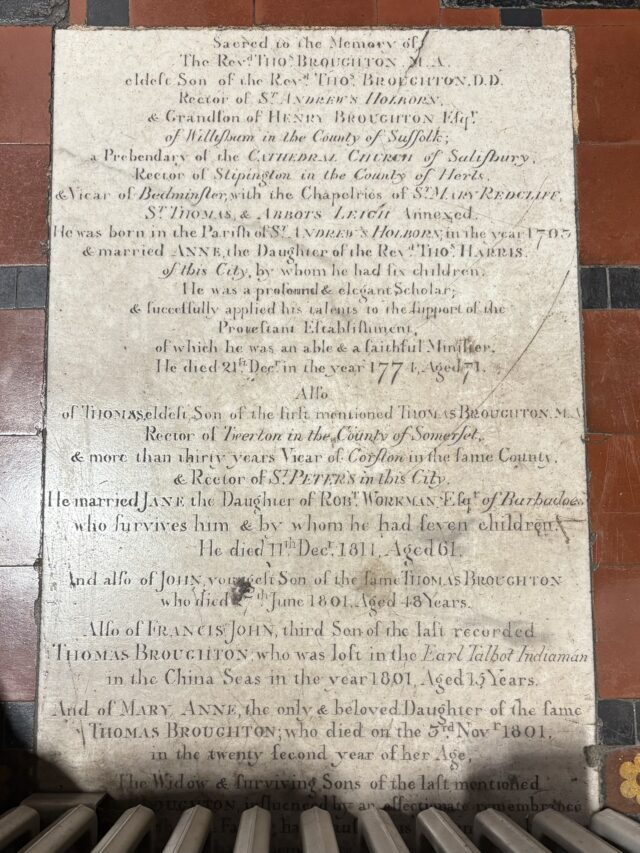 Sacred to the Memory of
The Revd. Thos. BROUGHTON, M.A.
eldeſt Son of the Revd. Thos. BROUGHTON, D.D.
Rector of ST. ANDREW'S HOLBORN,
& Grandſon of HENRY BROUGHTON Eſqr.
of Willſbum in the County of Suffolk;
a Prebendary of the CATHEDRAL CHURCH of Saliſbury,
Rector of Stipington in the County of Herts,
& Vicar of Bedminſter, with the Chapelries of ST. MARY REDCLIFF,
ST. THOMAS, & ABBOTS LEIGH Annexed.
He was born in the Pariſh of ST. ANDREW'S HOLBORN, in the year
& married ANNE, the Daughter of the Revd. Thos. HARRIS.
of this City, by whom he had ſix children.
He was a profound & elegant Scholar;
& ſucceſſfully applied his talents to the ſupport of the
Proteſtant Eſtabliſhment,
of which he was an able & a faithful Miniſter.
He died 21ſt Decr. in the year 1774, Aged 71.
Alſo
of THOMAS, eldeſt Son of the firſt mentioned THOMAS BROUGHTON, M.A
Rector of Twerton in the County of Somerſet,
& more than thirty years Vicar of Corſton in the ſame County,
& Rector of ST. PETERS in this City.
He married JANE the Daughter of ROBT. WORKMAN Eſqr. of Barbadoes
who ſurvives him & by whom he had ſeven children.
He died 11th Decr. 1811, Aged 61.
And alſo of JOHN, youngeſt Son of the ſame THOMAS BROUGHTON
who died June 1801, Aged 48 Years.
Alſo of FRANCIS JOHN, third Son of the laſt recorded
THOMAS BROUGHTON, who was loſt in the Earl Talbot Indiaman
in the China Seas in the year 1801, Aged 15 Years.
And of MARY ANNE, the only & beloved Daughter of the ſame
THOMAS BROUGHTON; who died on the 3rd Novr. 1801,
in the twenty ſecond year of her Age,
The Widow & ſurviving Sons of the laſt mentioned
BROUGHTON, influenced by an affectionate remembrance